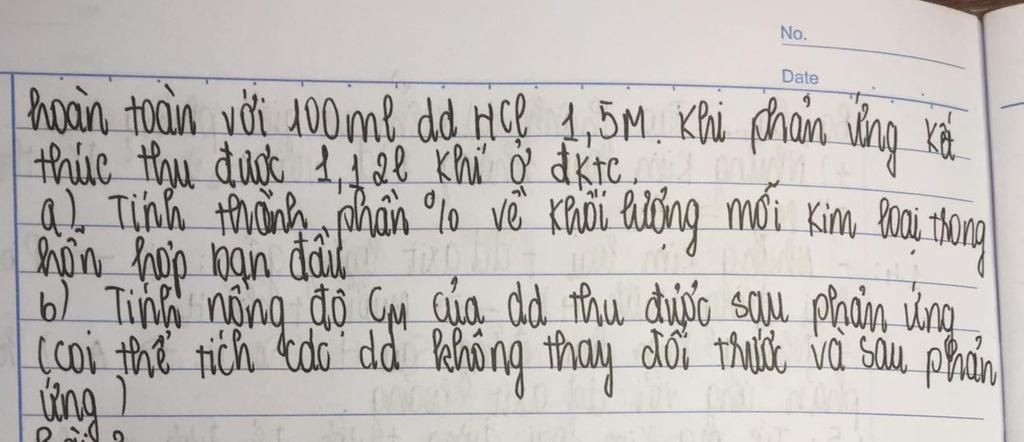 No.
Date
hoàn toàn với 100ml dd HCl 1,5M khi phản ứng kết
thúc thu được 1,12l khí ở đktc.
a) Tính thành phần % về khối lượng mỗi kim loại trong
hỗn hợp ban đầu
b) Tính nồng độ CM của dd thu được sau phản ứng
(coi thể tích các dd không thay đổi trước và sau phản
ứng)